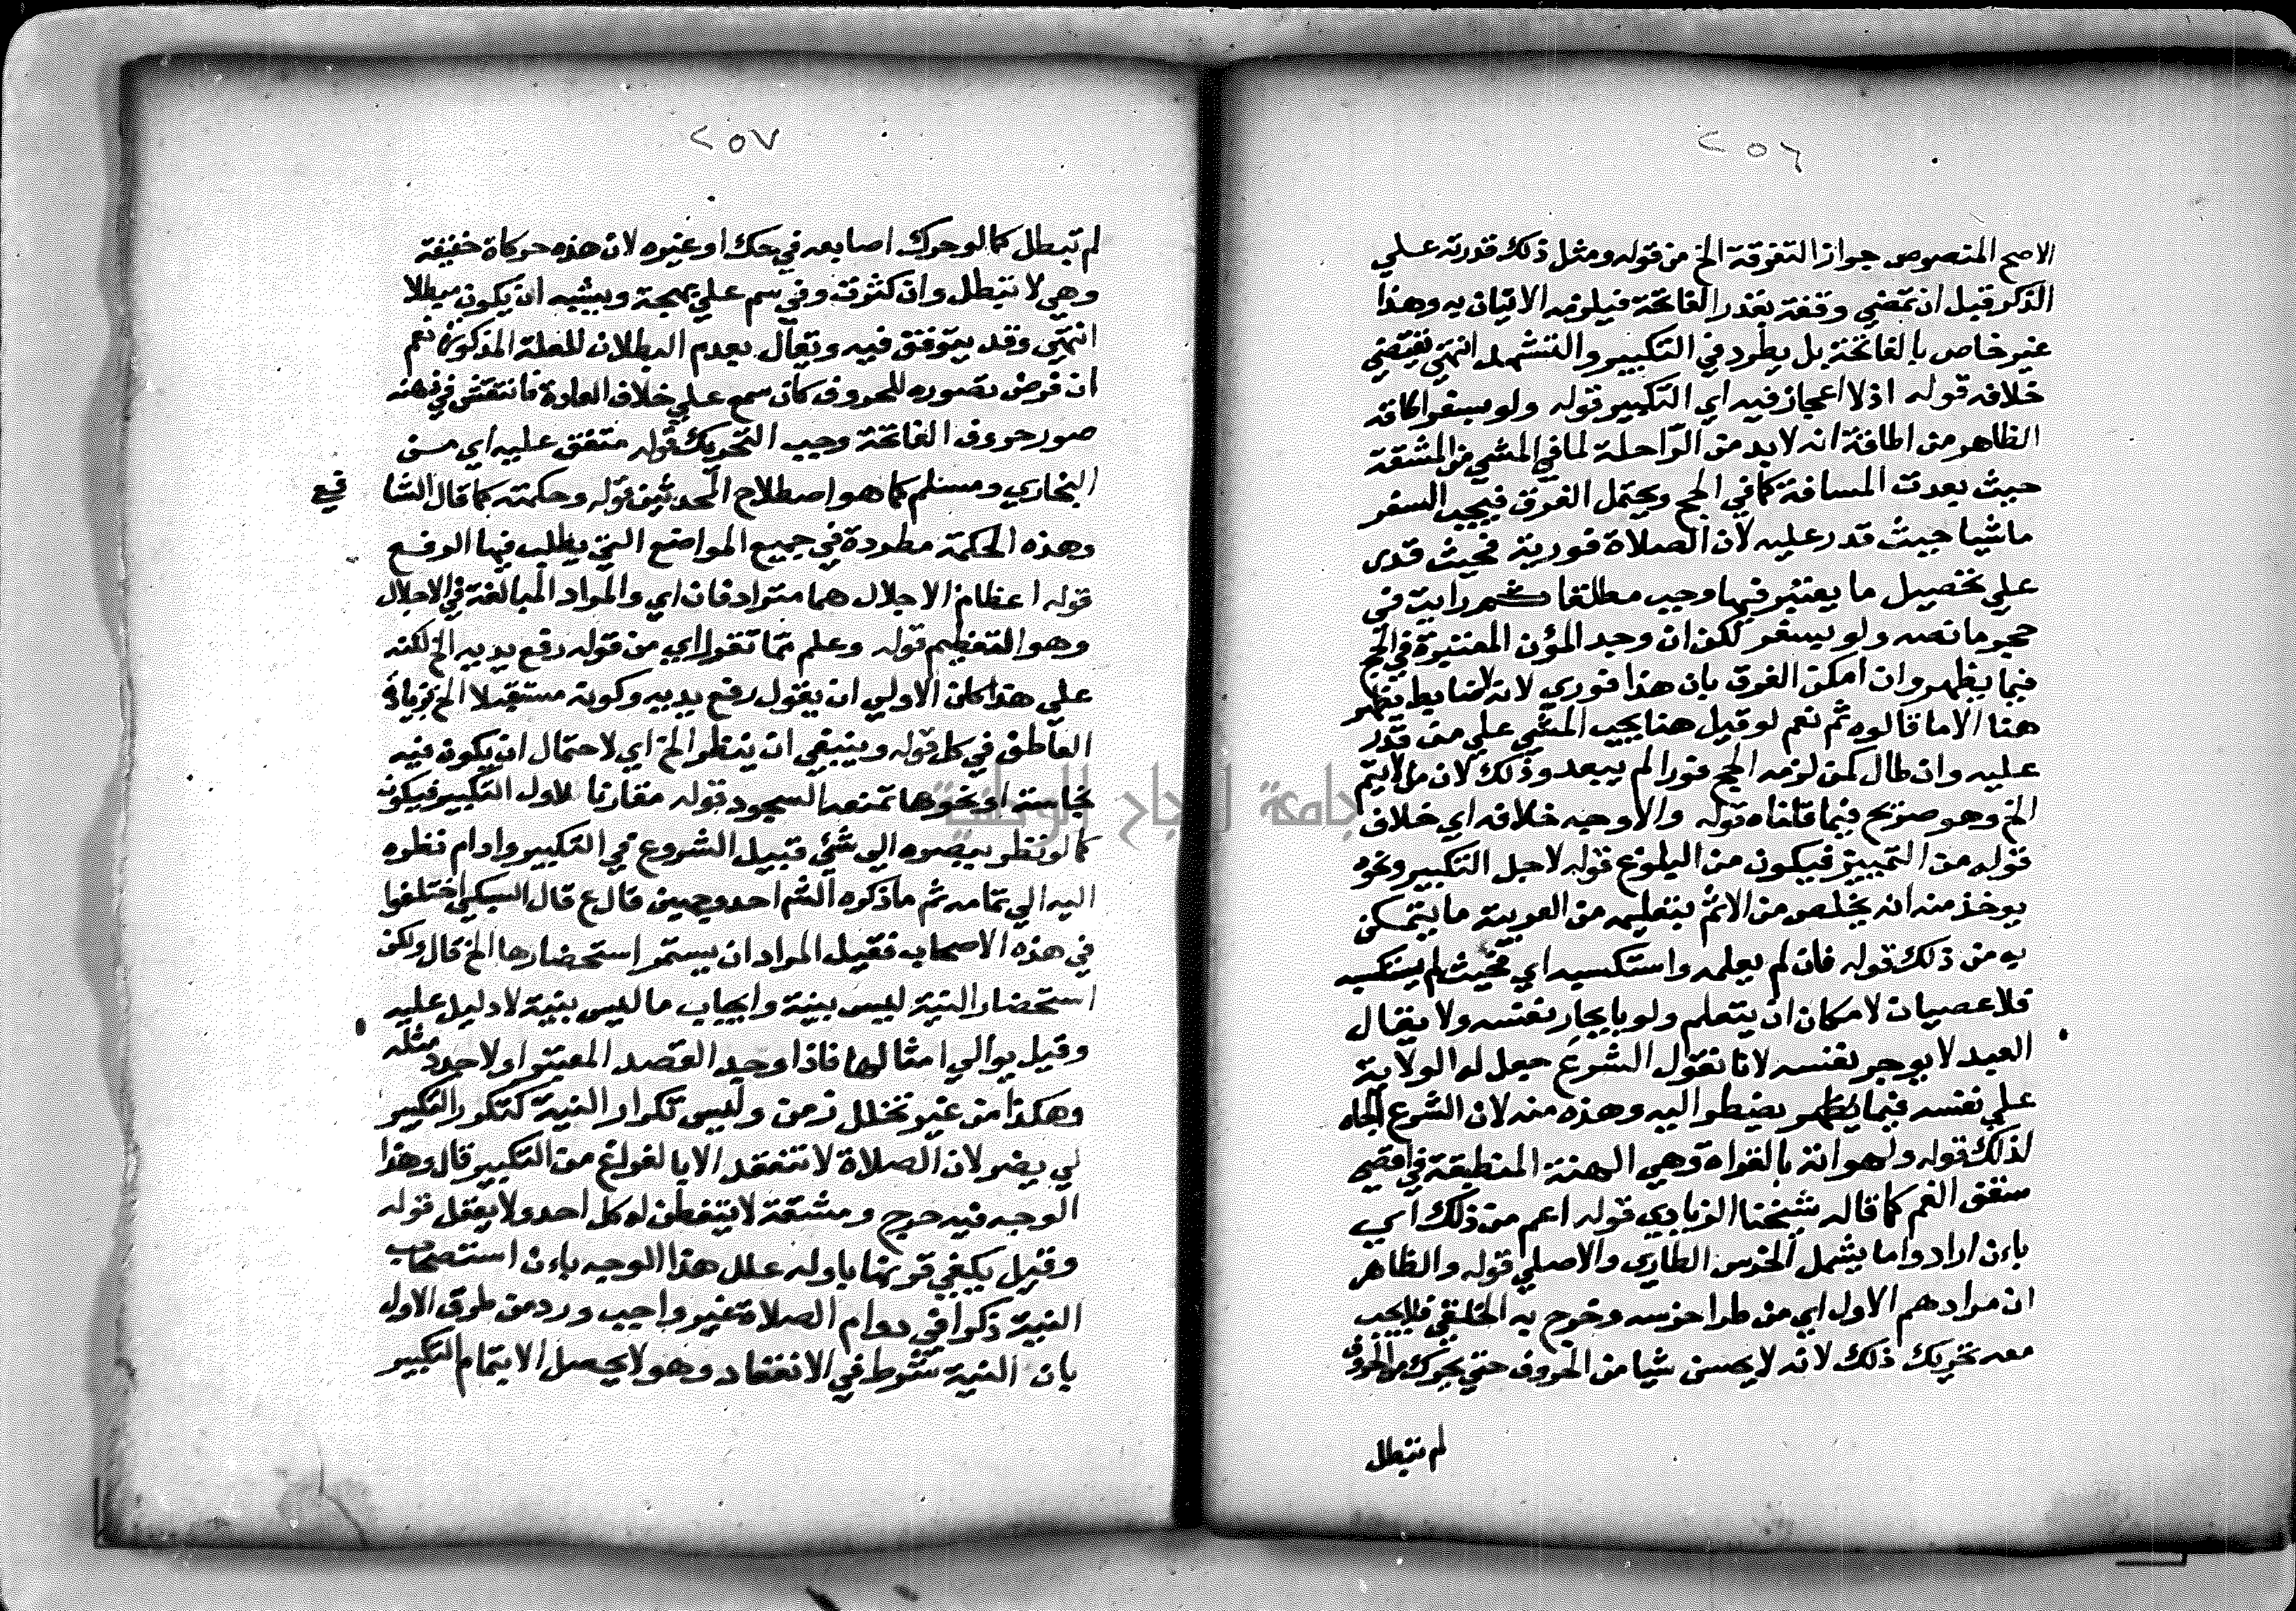 ٢٥٦
الاصح المنصوص جواز التفرقة الخ من قوله ومثل ذلك قدرته علي
الذكر قبل ان تمضي وقفة بقدر الفاتحة فيلزمه الاتيان به وهذا
غير خاص بالفاتحة بل يطرد في التكبير والتشهد انتهي يقتضي
خلافه قوله اذ لا اعجاز فيه اي التكبير قوله ولو بسفر اطاقه
الظاهر من اطاقة انه لا بد من الراحلة لما في المشي من المشقة
حيث بعدت المسافة كما في الحج ويحتمل الفرق فيجب السفر
ماشيا حيث قدر عليه لان الصلاة فورية فحيث قدر
علي تحصيل ما يعتبر فيها وجب مطلقا ثم رايت في
حجر ما نصه ولو بسفر لكن ان وجد المؤن المعتبرة في الحج
فيما يظهر وان امكن الفرق بان هذا فوري لانه لا ضابط يظهر
هنا الا ما قالوه ثم نعم لو قيل هنا يجب المشي علي من قدر
عليه وان طال كمن لزمه الحج فورا لم يبعد وذلك لان ما لا يتم
الخ وهو صريح فيما قلناه قوله والاوجه خلافه اي خلاف
قوله من التمييز فيكون من البلوغ قوله لاجل التكبير ونحوه
يوخذ منه انه يخلص من الاثم بتعليمه من العربية ما يتمكن
به من ذلك قوله فان لم يعلمه واستكسبه اي فحيث لم يستكسبه
فلا عصيان لامكان ان يتعلم ولو بايجار نفسه ولا يقال
العبد لا يوجر نفسه لانا نقول الشرع جعل له الولاية
علي نفسه فيما يظهر يضطر اليه وهذه منه لان الشرع الجاه
لذلك قوله ولهواته بالقراة وهي الهنة المنطبقة في اقصي
سقف الفم كما قاله شيخنا الزيادي قوله اعم من ذلك اي
بان ارادوا ما يشمل الخرس الطاري والاصلي قوله والظاهر
ان مرادهم الاول اي من طرا خرسه وخرج به الخلقي فلا يجب
معه تحريك ذلك لانه لا يحسن شيا من الحروف حتي يحرك بالحروف
لم تبطل
٢٥٧
لم تبطل كما لو حرك اصابعه في حك او غيره لان هذه حركاة خفيفة
وهي لا تبطل وان كثرت وفي سم علي بهجة ويشبه ان يكون مبطلا
انتهي وقد يتوقف فيه ويقال بعدم البطلان للعلة المذكورة نعم
ان فرض تصوره للحروف كان سمع علي خلاف العادة فانتقش في ذهنه
صور حروف الفاتحة وجب التحريك قوله متفق عليه اي من
البخاري ومسلم كما هو اصطلاح المحدثين قوله وحكمته كما قال الشا فعي
وهذه الحكمة مطردة في جميع المواضع التي يطلب فيها الرفع
قوله اعظام الاجلال هما مترادفان اي والمراد المبالغة في الاجلال
وهو التعظيم قوله وعلم مما تقرر اي من قوله رفع يديه الخ لكنه
علي هذا كان الاولي ان يقول رفع يديه وكونه مستقبلا الخ بزيادة
العاطف في كل قوله وينبغي ان ينظر الخ اي لاحتمال ان يكون فيه
نجاسة او نحوها تمنعه السجود قوله مقارنا لاول التكبير فيكون
كما لو نظر ببصره الي شيء قبيل الشروع في التكبير وادام نظره
اليه الي تمامه ثم ما ذكره الشم احد وجهين قال ع قال السبكي اختلفوا
في هذه الاصحاب فقيل المراد ان يستمر استحضارها الخ قال ولكن
استحضار النية ليس بنية وايجاب ما ليس بنية لا دليل عليه
وقيل يوالي امثالها فاذا وجد القصد المعتبر اولا جدد مثله
وهكذا من غير تخلل زمن وليس تكرار النية كتكرر التكبير
لي يضر لان الصلاة لا تنعقد الا بالفراغ من التكبير قال وهذا
الوجه فيه حرج ومشقة لا يتفطن له كل احد ولا يعقل قوله
وقيل يكفي قرنها باوله علل هذا الوجه بان استصحاب
النية ذكرا في دوام الصلاة غير واجب ورد من طرق الاول
بان النية شرط في الانعقاد وهو لا يحصل الا بتمام التكبير
جامعة النجاح الوطنية